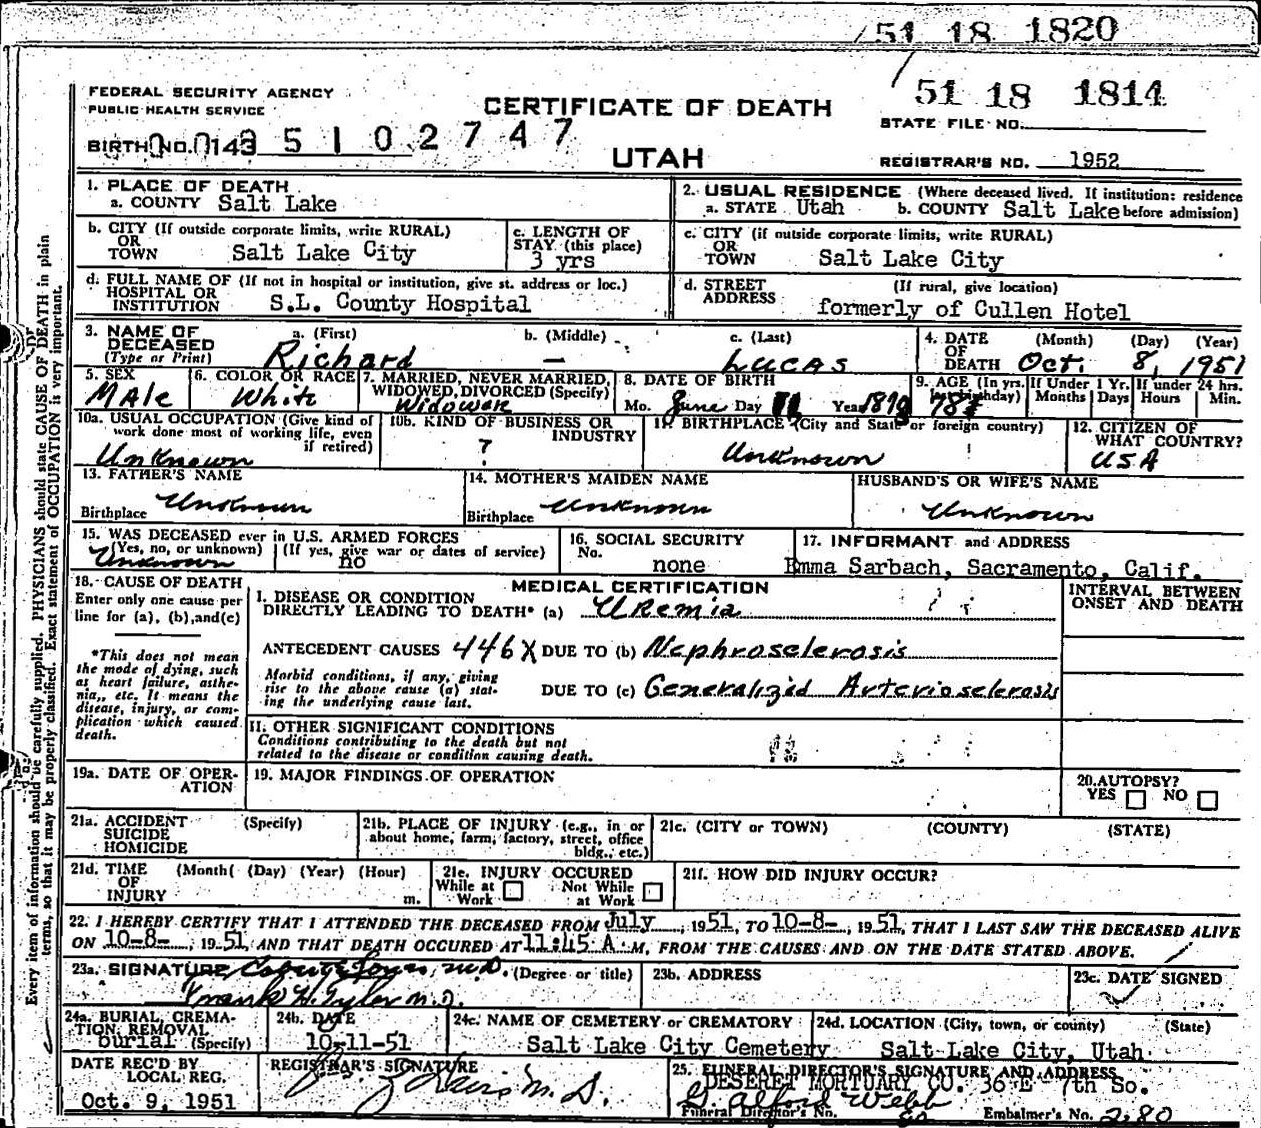 51 18 1820
FEDERAL SECURITY AGENCY
PUBLIC HEALTH SERVICE
CERTIFICATE OF DEATH
51 18 1814
STATE FILE NO.
BIRTH NO. 0143 5 1 0 2 7 4 7
UTAH
REGISTRAR'S NO. 1952
1. PLACE OF DEATH
a. COUNTY Salt Lake
2. USUAL RESIDENCE (Where deceased lived. If institution: residence
a. STATE Utah b. COUNTY Salt Lake before admission)
b. CITY (If outside corporate limits, write RURAL)
OR
TOWN Salt Lake City
c. LENGTH OF
STAY (this place)
3 yrs
c. CITY (if outside corporate limits, write RURAL)
OR
TOWN Salt Lake City
d. FULL NAME OF (If not in hospital or institution, give st. address or loc.)
HOSPITAL OR
INSTITUTION S.L. County Hospital
d. STREET (If rural, give location)
ADDRESS
formerly of Cullen Hotel
3. NAME OF
DECEASED
(Type or Print)
a. (First) b. (Middle) c. (Last)
Richard — Lucas
4. DATE (Month) (Day) (Year)
OF
DEATH Oct. 8, 1951
5. SEX
Male
6. COLOR OR RACE
White
7. MARRIED, NEVER MARRIED,
WIDOWED, DIVORCED (Specify)
Widower
8. DATE OF BIRTH
Mo. June Day Year
9. AGE (In yrs.
last birthday)
78
If Under 1 Yr.
Months Days
If under 24 hrs.
Hours Min.
10a. USUAL OCCUPATION (Give kind of
work done most of working life, even
if retired)
Unknown
10b. KIND OF BUSINESS OR
INDUSTRY
?
11. BIRTHPLACE (City and State or foreign country)
Unknown
12. CITIZEN OF
WHAT COUNTRY?
USA
13. FATHER'S NAME
Unknown
Birthplace
14. MOTHER'S MAIDEN NAME
Unknown
Birthplace
HUSBAND'S OR WIFE'S NAME
Unknown
15. WAS DECEASED ever in U.S. ARMED FORCES
(Yes, no, or unknown) (If yes, give war or dates of service)
Unknown no
16. SOCIAL SECURITY
No.
none
17. INFORMANT and ADDRESS
Emma Sarbach, Sacramento, Calif.
18. CAUSE OF DEATH
Enter only one cause per
line for (a), (b), and (c)
*This does not mean
the mode of dying, such
as heart failure, asthe-
nia, etc. It means the
disease, injury, or com-
plication which caused
death.
MEDICAL CERTIFICATION
I. DISEASE OR CONDITION
DIRECTLY LEADING TO DEATH* (a) Uremia
ANTECEDENT CAUSES 446X DUE TO (b) Nephrosclerosis
Morbid conditions, if any, giving
rise to the above cause (a) stat-
ing the underlying cause last.
DUE TO (c) Generalized Arteriosclerosis
II. OTHER SIGNIFICANT CONDITIONS
Conditions contributing to the death but not
related to the disease or condition causing death.
INTERVAL BETWEEN
ONSET AND DEATH
19a. DATE OF OPER-
ATION
19. MAJOR FINDINGS OF OPERATION
20. AUTOPSY?
YES NO
21a. ACCIDENT (Specify)
SUICIDE
HOMICIDE
21b. PLACE OF INJURY (e.g., in or
about home, farm, factory, street, office
bldg., etc.)
21c. (CITY or TOWN) (COUNTY) (STATE)
21d. TIME (Month( (Day) (Year) (Hour)
OF
INJURY m.
21e. INJURY OCCURED
While at Not While
Work at Work
21f. HOW DID INJURY OCCUR?
22. I HEREBY CERTIFY THAT I ATTENDED THE DECEASED FROM July, 1951, TO 10-8-, 1951, THAT I LAST SAW THE DECEASED ALIVE
ON 10-8-, 1951, AND THAT DEATH OCCURED AT 11:45 A.M, FROM THE CAUSES AND ON THE DATE STATED ABOVE.
23a. SIGNATURE M.D. (Degree or title)
Frank H. Tyler M.D.
23b. ADDRESS
23c. DATE SIGNED
24a. BURIAL, CREMA-
TION, REMOVAL
burial (Specify)
24b. DATE
10-11-51
24c. NAME OF CEMETERY or CREMATORY
Salt Lake City Cemetery
24d. LOCATION (City, town, or county) (State)
Salt Lake City, Utah
DATE REC'D BY
LOCAL REG.
Oct. 9, 1951
REGISTRAR'S SIGNATURE
M.D.
25. FUNERAL DIRECTOR'S SIGNATURE AND ADDRESS
DESERET MORTUARY CO. 36 E - 7th So.
G. Alford Webb
Funeral Director's No. Embalmer's No. 280
Every item of information should be carefully supplied. PHYSICIANS should state CAUSE OF DEATH in plain
terms, so that it may be properly classified. Exact statement of OCCUPATION is very important.